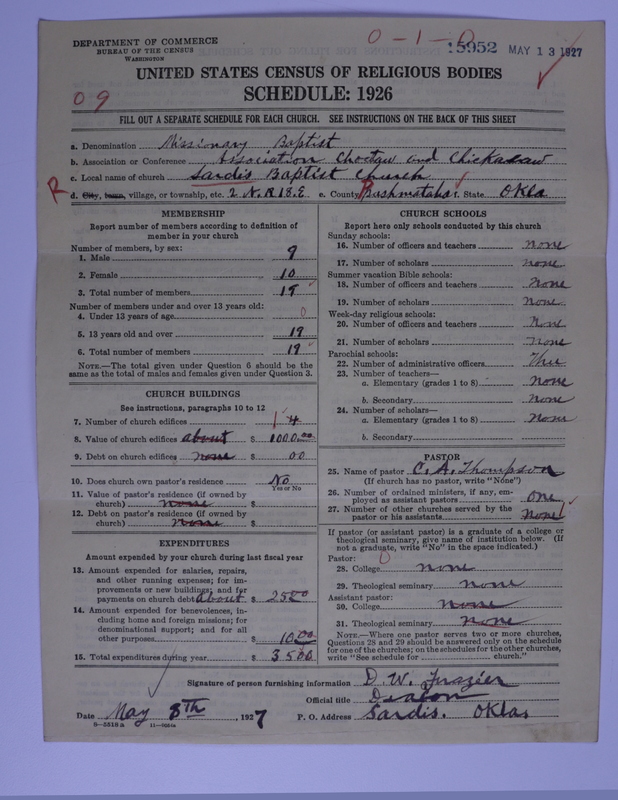 DEPARTMENT OF COMMERCE
BUREAU OF THE CENSUS
WASHINGTON
0-1-0
15952 MAY 13 1927
UNITED STATES CENSUS OF RELIGIOUS BODIES
SCHEDULE: 1926
09
FILL OUT A SEPARATE SCHEDULE FOR EACH CHURCH. SEE INSTRUCTIONS ON THE BACK OF THIS SHEET
a. Denomination Missionary Baptist
b. Association or Conference Association Choctaw and Chickasaw
c. Local name of church Sardis Baptist Church
R d. City, town, village, or township, etc. 2 N. R 18. E e. County Pushmataha f. State Okla
MEMBERSHIP
Report number of members according to definition of
member in your church
Number of members, by sex:
1. Male 9
2. Female 10
3. Total number of members 19
Number of members under and over 13 years old:
4. Under 13 years of age 0
5. 13 years old and over 19
6. Total number of members 19
NOTE.—The total given under Question 6 should be
same as the total of males and females given under Question 3.
CHURCH BUILDINGS
See instructions, paragraphs 10 to 12
7. Number of church edifices 1 4
8. Value of church edifices about $ 1000.00
9. Debt on church edifices none $ 00
10. Does church own pastor's residence? No
Yes or No
11. Value of pastor's residence (if owned by
church) none $
12. Debt on pastor's residence (if owned by
church) none $
EXPENDITURES
Amount expended by your church during last fiscal year
13. Amount expended for salaries, repairs,
and other running expenses; for im-
provements or new buildings; and for
payments on church debt about $ 25 00
14. Amount expended for benevolences, in-
cluding home and foreign missions; for
denominational support; and for all
other purposes $ 10 00
15. Total expenditures during year $ 35 00
CHURCH SCHOOLS
Report here only schools conducted by this church
Sunday schools:
16. Number of officers and teachers none
17. Number of scholars none
Summer vacation Bible schools:
18. Number of officers and teachers None
19. Number of scholars None
Week-day religious schools:
20. Number of officers and teachers None
21. Number of scholars none
Parochial schools:
22. Number of administrative officers
23. Number of teachers—
a. Elementary (grades 1 to 8) none
b. Secondary None
24. Number of scholars—
a. Elementary (grades 1 to 8) None
b. Secondary
PASTOR
25. Name of pastor C. A. Thompson
(If church has no pastor, write "None")
26. Number of ordained ministers, if any, em-
ployed as assistant pastors one
27. Number of other churches served by the
pastor or his assistants None
If pastor (or assistant pastor) is a graduate of a college or
theological seminary, give name of institution below. (If
not a graduate, write "No" in the space indicated.)
Pastor: 0
28. College none
29. Theological seminary none
Assistant pastor:
30. College none
31. Theological seminary none
NOTE.—Where one pastor serves two or more churches,
Questions 28 and 29 should be answered only on the schedule
for one of the churches; on the schedules for the other churches,
write "See schedule for church."
Signature of person furnishing information D. W. Frazier
Official title Deacon
Date May 8th, 1927 P. O. Address Sardis. Okla
8-5518a